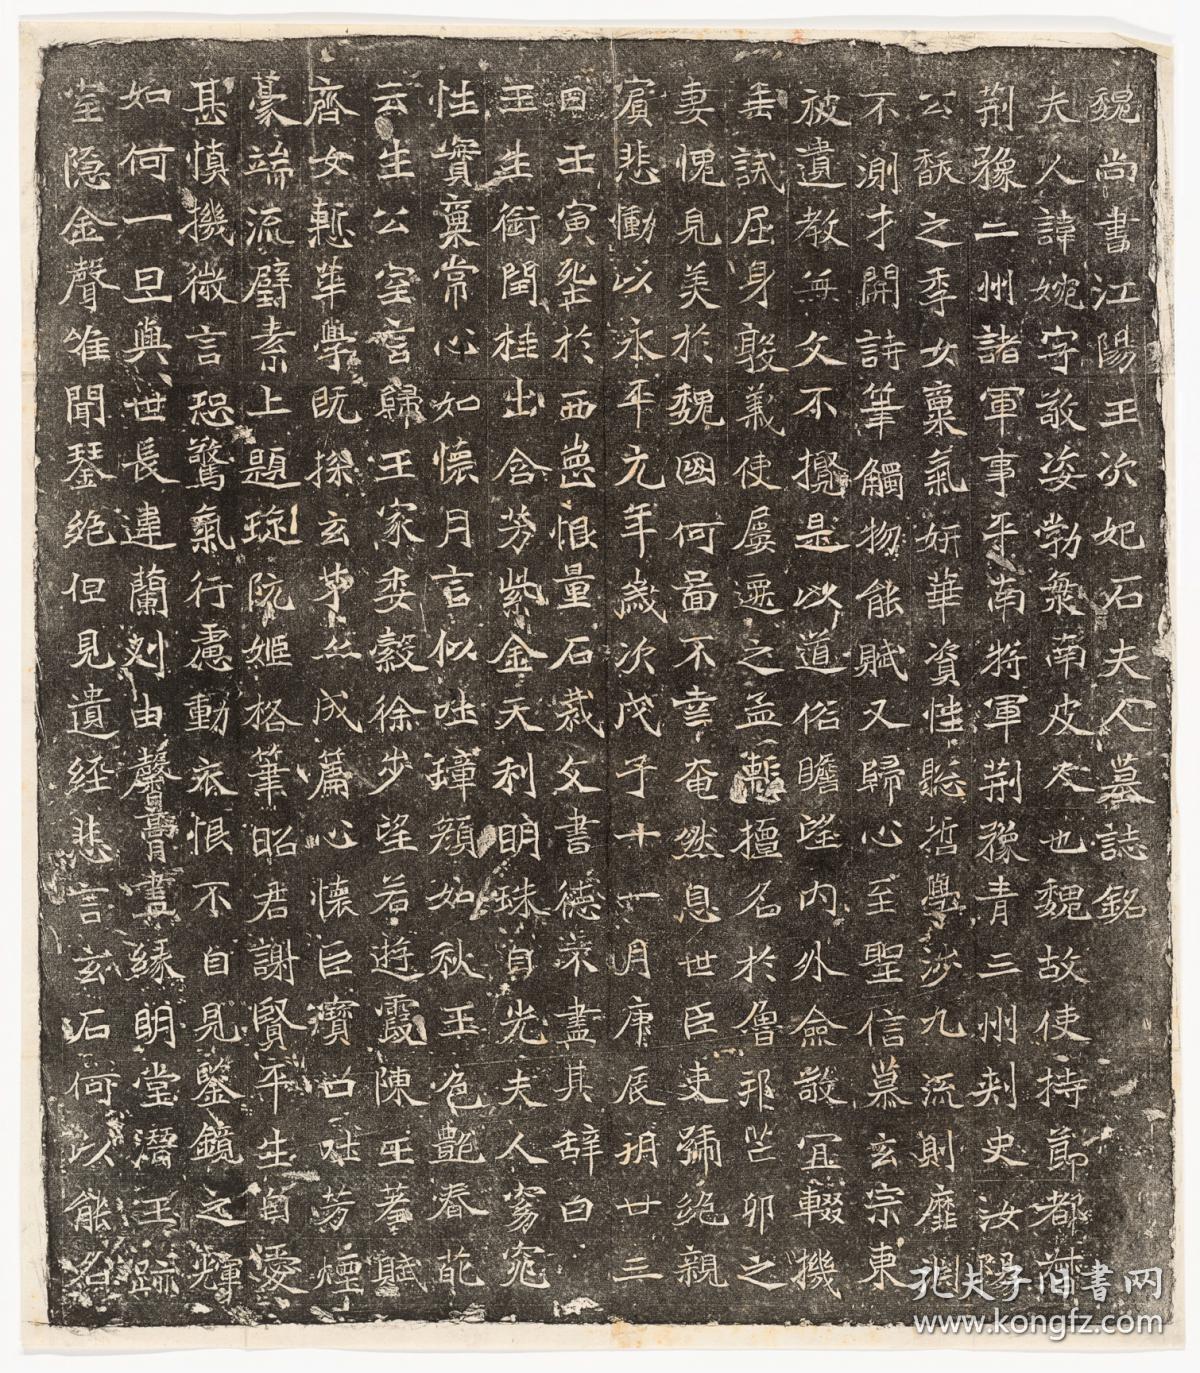 魏尚書江陽王次妃石夫人墓誌銘
夫人諱婉字敬姿勃海南皮人也魏故使持節都督
荆豫二州諸軍事平南將軍荆豫青三州刾史汝陽
公馛之季女稟氣妍華資性聡哲學涉九流則靡淵
不測才關詩筆觸物能賦又歸心至聖信慕玄宗東
被遺教無文不攬是以道俗瞻望内外僉敬冝輟機
垂誡屈身敦義使屢遷之孟慙擅名於魯邦芒卯之
妻愧見美於魏國何啚不幸奄然息世臣吏號絶親
賓悲慟以永平元年歲次戊子十一月庚辰玥廿三
日壬寅葬於西崗恨量石裁文書德不盡其辞曰
玉生衘閏桂出含芳紫金天利明珠自光夫人窈窕
性實稟常心如懷月言似吐璋顔如秋玉色艶春葩
云生公室言歸王家委縠徐步望若遊霞陳王羞賦
齊女慙華學既探玄才亦成篇心懷巨寶口吐芳煙
豪端流璧素上題琁阮姬格筆昭君謝賢平生自愛
甚慎機微言恐驚氣行慮動衣恨不自見鑒鏡之輝
如何一旦與世長違蘭刈由馨膏盡緣明堂潛玉跡
室隐金聲唯聞琴絶但見遺經悲言玄石何以能名
孔夫子旧書网
www.kongfz.com